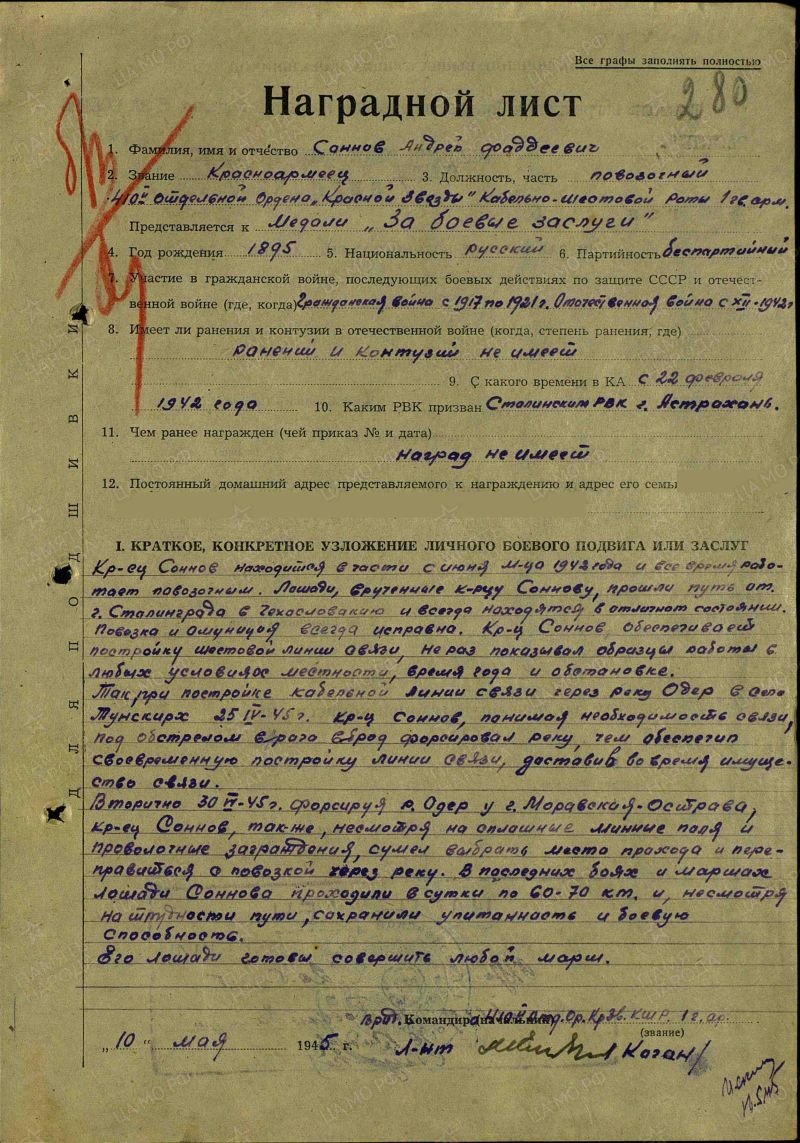 Все графы заполнять полностью
280
Наградной лист
1. Фамилия, имя и отчество Соннов Андрей Фаддеевич
2. Звание Красноармеец 3. Должность, часть повозочный
410й отдельной Ордена „Красной Звезды" Кабельно-шестовой Роты 1 гв. арм.
Представляется к Медали „За боевые заслуги"
4. Год рождения 1895 5. Национальность русский 6. Партийность беспартийный
7. Участие в гражданской войне, последующих боевых действиях по защите СССР и отечест-
венной войне (где, когда) Гражданская война с 1917 по 1921 г. Отечественная война с XII-1942 г
8. Имеет ли ранения и контузии в отечественной войне (когда, степень ранения, где)
Ранений и контузий не имеет
9. С какого времени в КА с 22 февраля
1942 года 10. Каким РВК призван Сталинским РВК г. Астрахань.
11. Чем ранее награжден (чей приказ № и дата)
Наград не имеет
12. Постоянный домашний адрес представляемого к награждению и адрес его семьи
ДЛЯ ПОДШИВКИ
I. КРАТКОЕ, КОНКРЕТНОЕ УЗЛОЖЕНИЕ ЛИЧНОГО БОЕВОГО ПОДВИГА ИЛИ ЗАСЛУГ
Кр-ец Соннов находится в части с июня м-ца 1942 года и все время рабо-
тает повозочным. Лошади, врученные к-рцу Соннову, прошли путь от
г. Сталинграда в Чехословакию и всегда находятся в отличном состоянии.
Повозка и амуниция всегда исправна. Кр-ц Соннов обеспечивает
постройку шестовой линии связи, не раз показывал образцы работы в
любых условиях местности, время года и обстановке.
Так, при постройке кабельной линии связи через реку Одер в селе
Тунскирх 25 IV-45 г. Кр-ц Соннов, понимая необходимость связи,
под обстрелом врага вброд форсировал реку, чем обеспечил
своевременную постройку линии связи, доставив во время имуще-
ство связи.
Вторично 30 IV-45 г. форсируя р. Одер у г. Моравская-Острава,
кр-ец Соннов, так-же, несмотря на сплошные минные поля и
проволочные заграждения, сумел выбрать место прохода и пере-
правиться с повозкой через реку. В последних боях и маршах
лошади Соннова проходили в сутки по 60-70 км. и, несмотря
на трудности пути, сохранили упитанность и боевую
способность.
Его лошади готовы совершить любой марш.
Врид. Командира 410й отд. Ор. Кр. Зв. КШР 1 г. ар.
(звание)
„10" мая 1945 г. Л-нт Коган/